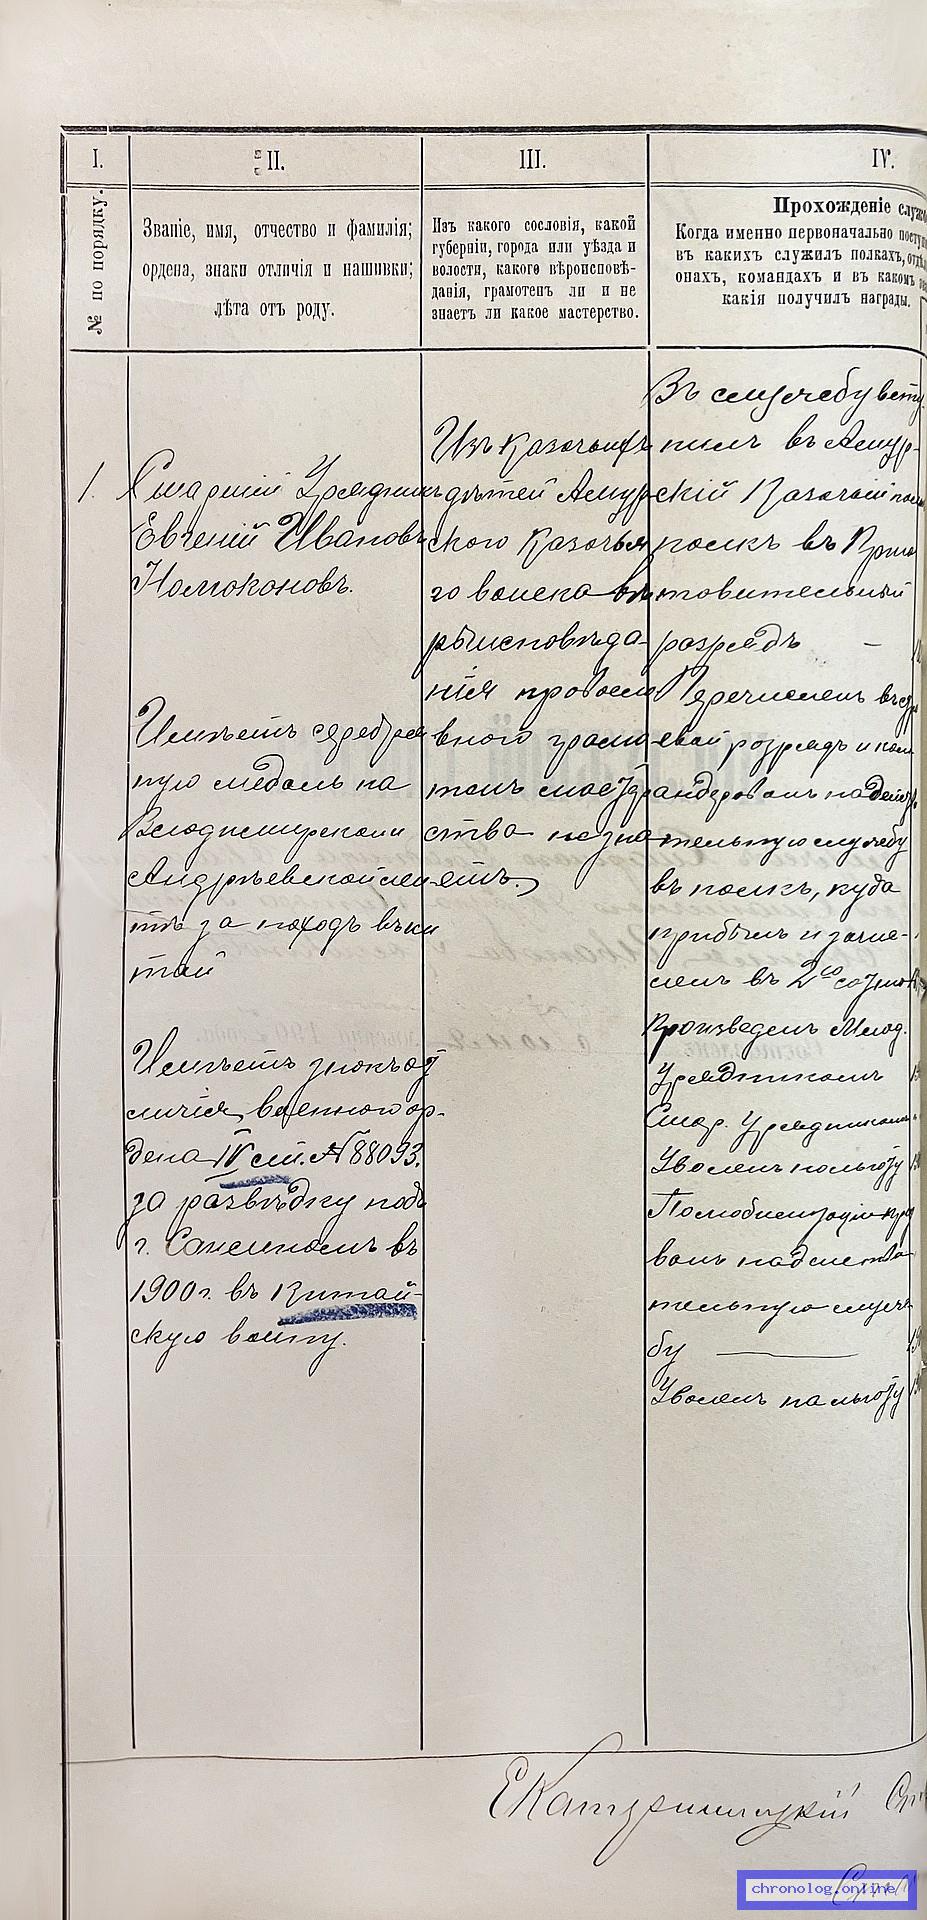 I.
№ по порядку.
II.
Званіе, имя, отчество и фамилія;
ордена, знаки отличія и нашивки;
лѣта отъ роду.
III.
Изъ какого сословія, какой
губерніи, города или уѣзда и
волости, какого вѣроисповѣ-
данія, грамотенъ ли и не
знаетъ ли какое мастерство.
IV.
Прохожденіе служ
Когда именно первоначально посту
въ какихъ служилъ полкахъ, отдѣ
онахъ, командахъ и въ какомъ
какія получилъ награды.
1.
Старшій Урядникъ
Евгеній Ивановъ
Номоконовъ.
Имѣетъ серебрян
ную медаль на
Владимирской
Андреевской лен
тѣ за походъ въ Ки
тай
Имѣетъ знакъ от
личія военного ор-
дена IV ст. № 88093.
за развѣдку подъ
г. Сансиномъ въ
1900 г. въ Китай-
скую войну.
Изъ казачьихъ
дѣтей Амур
ского казачья
го войска вѣ
роисповѣда
нія правосла
вного грамо
тенъ мастер
ства не зна
етъ.
Въ службу всту
пилъ въ Амур-
скій Казачій
полкъ въ Приго
товительный
разрядъ —
Перечисленъ въ стро
евой разрядъ и ком
андированъ на дейст
тельную службу
въ полкъ, куда
прибылъ и зачис-
ленъ въ 2ую сотню
Произведенъ Млад.
Урядникомъ
Стар. Урядникомъ
Уволенъ на льготу
По мобилизаціи приз
ванъ на действи
тельную служ
бу —
Уволенъ на льготу
chronolog.online